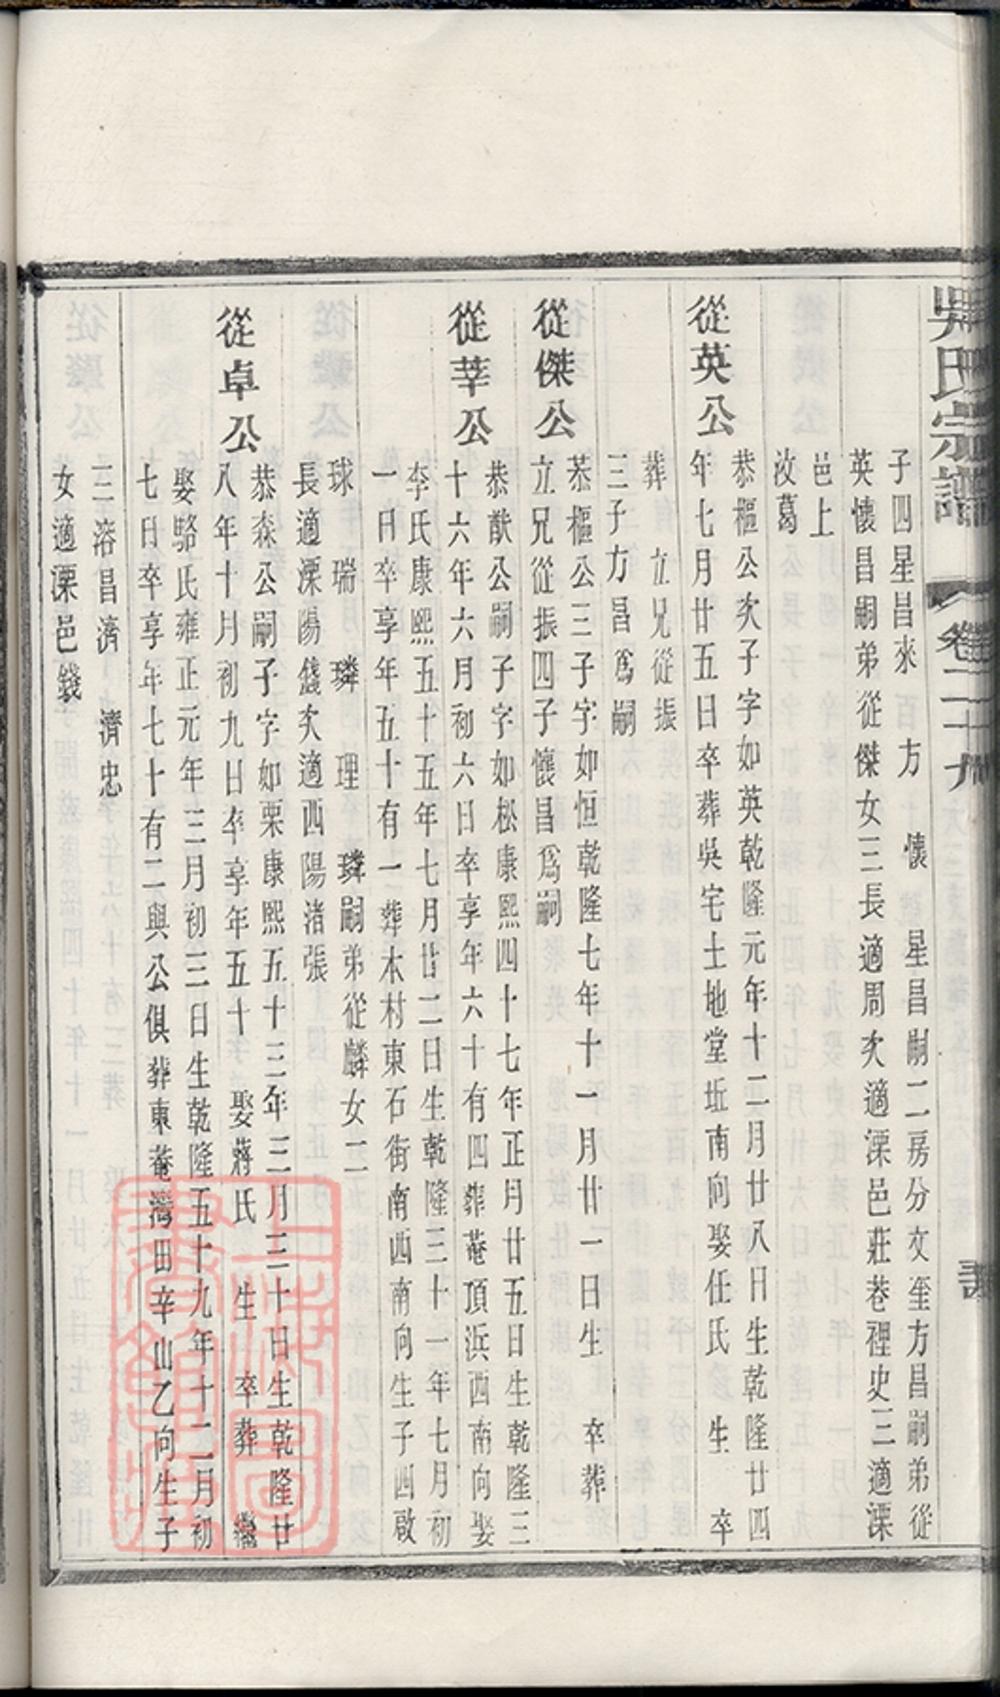 吳氏宗譜
卷二十九
子四星昌來　方　懷　星昌嗣二房分文奎方昌嗣弟從
英懷昌嗣弟從傑女三長適周次適溧邑莊巷裡史三適溧
邑上
汝葛
從英公
恭樞公次子字如英乾隆元年十二月廿八日生乾隆廿四
年七月廿五日卒葬吳宅土地堂坵南向娶任氏　生　卒
葬　立兄從振
三子方昌爲嗣
從傑公
恭樞公三子字如恒乾隆七年十一月廿一日生　卒葬
立兄從振四子懷昌爲嗣
從莘公
恭猷公嗣子字如松康熙四十七年正月廿五日生乾隆三
十六年六月初六日卒享年六十有四葬菴頂浜西南向娶
李氏康熙五十五年七月廿二日生乾隆三十一年七月初
一日卒享年五十有一葬木村東石街南西南向生子四啟
球　瑞　璘　理　璘嗣弟從麟女二
長適溧陽錢次適四陽渚張
從卓公
恭森公嗣子字如栗康熙五十三年三月三十日生乾隆廿
八年十月初九日卒享年五十　娶蔣氏　生　卒葬　繼
娶駱氏雍正元年三月初三日生乾隆五十九年十二月初
七日卒享年七十有二與公俱葬東菴灣田辛山乙向生子
二溶昌濟　濟忠
女適溧邑錢